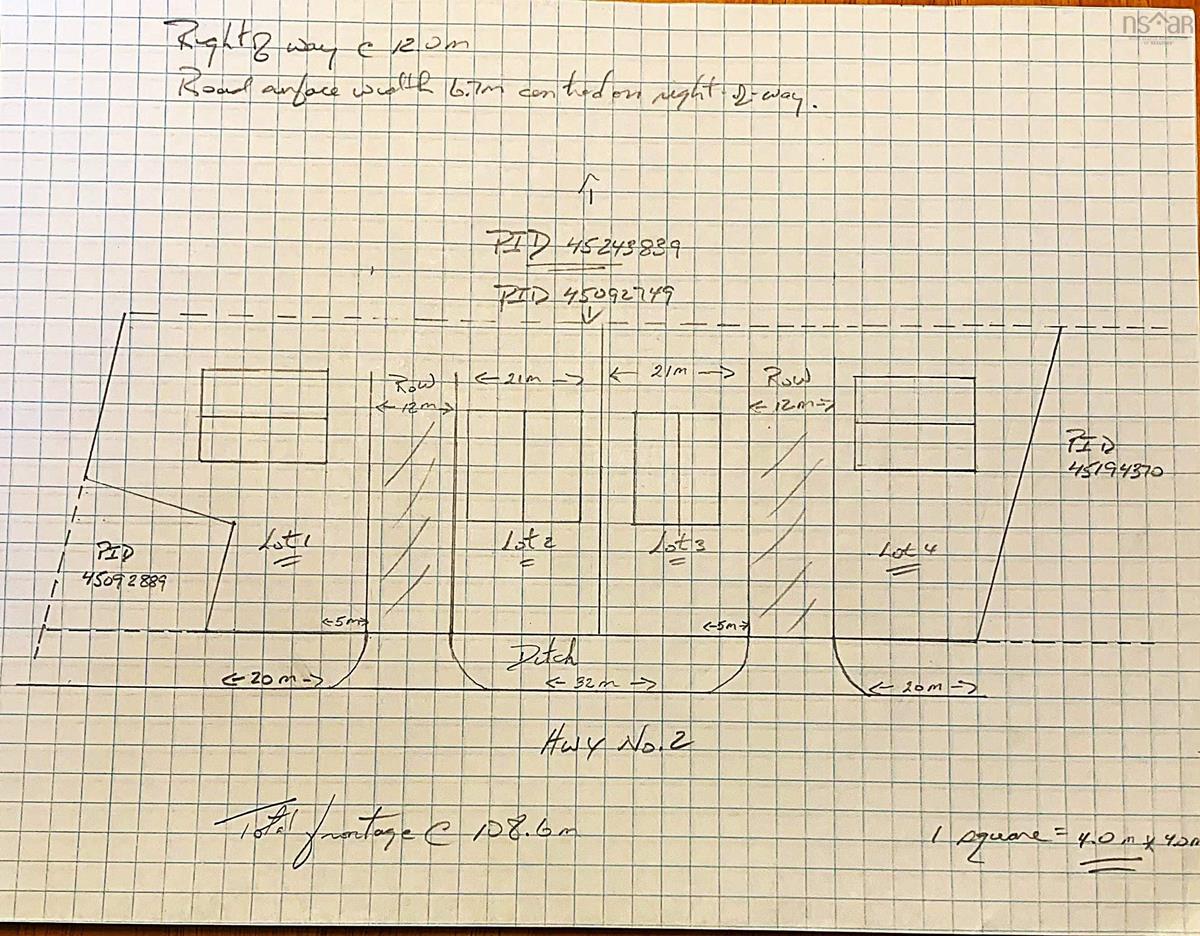 nsaar
Right of way @ 12.0m
Road surface width 6.7m centred on right-of-way.
PID 45243839
PID 45092749
Row
←21m→
←21m→
Row
←12m→
←12m→
PID
45194370
Lot 1
Lot 2
Lot 3
Lot 4
PID
45092889
←5m→
←5m→
Ditch
←20m→
←32m→
←20m→
Hwy No. 2
Total frontage @ 108.6m
1 square = 4.0 m x 4.0m